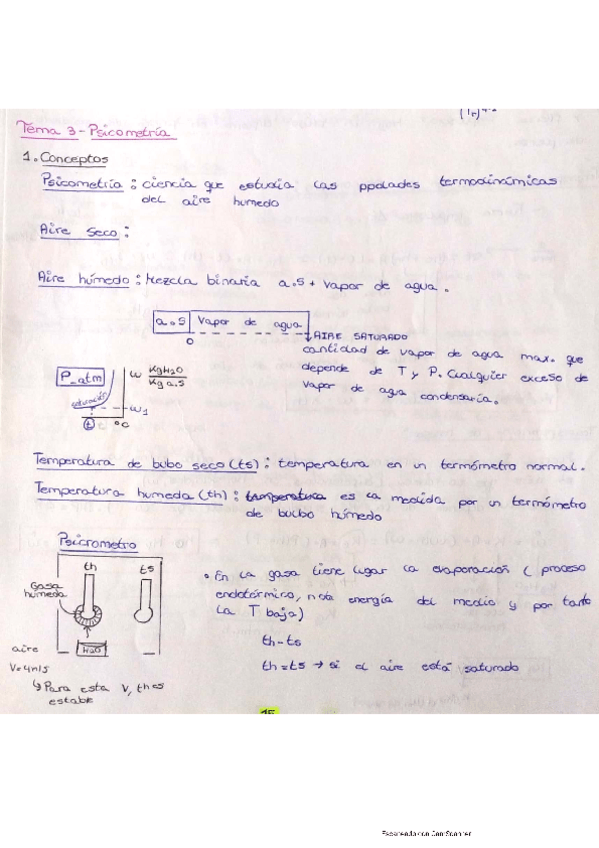 Tema 3 - Psicometría
1. Conceptos
Psicometría : ciencia que estudia las ppdades termodinámicas
del aire humedo
Aire seco :
Aire húmedo : Mezcla binaria a.s + vapor de agua .
a.s Vapor de agua
0
AIRE SATURADO
cantidad de vapor de agua max. que
depende de T y P. Cualquier exceso de
vapor de agua condensaría.
P_atm
w KgH2O
Kg a.s
saturación
w1
t
ºC
Temperatura de bubo seco (ts) : temperatura en un termómetro normal.
Temperatura humeda (th) : temperatura es la medida por un termómetro
de bulbo húmedo
Psicrometro
th ts
Gasa
húmeda
H2O
aire
V=4m/s
↳ Para esta V, th es
estable
• En la gasa tiene lugar la evaporación ( proceso
endotérmico, energía del medio y por tanto
la T baja)
th-ts
th=ts → si el aire está saturado
15
Escaneado con CamScanner